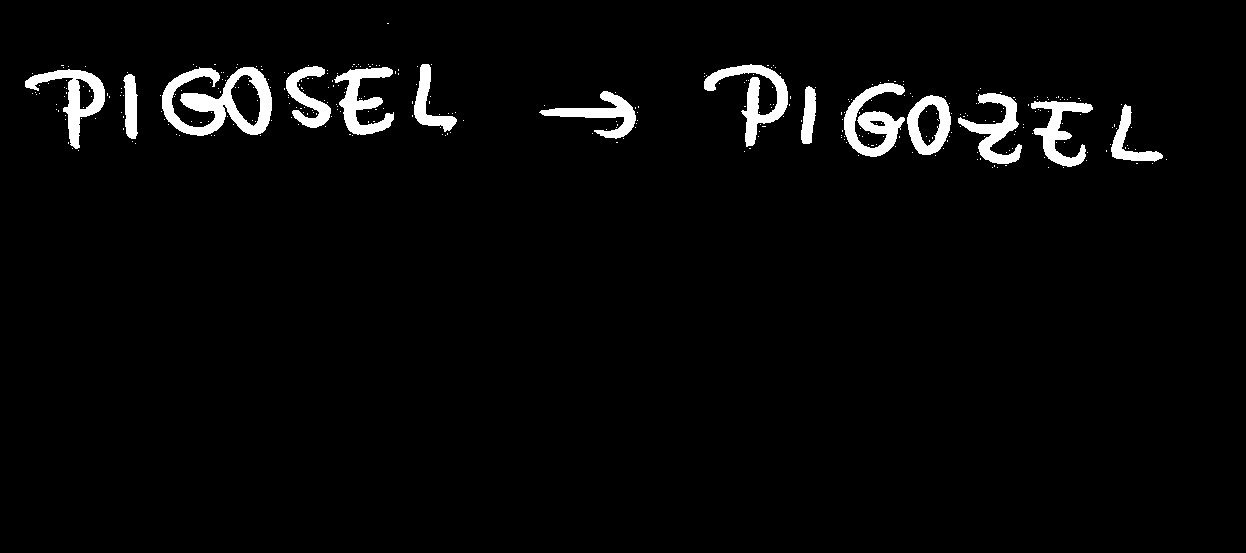 PIGOSEL → PIGOZEL